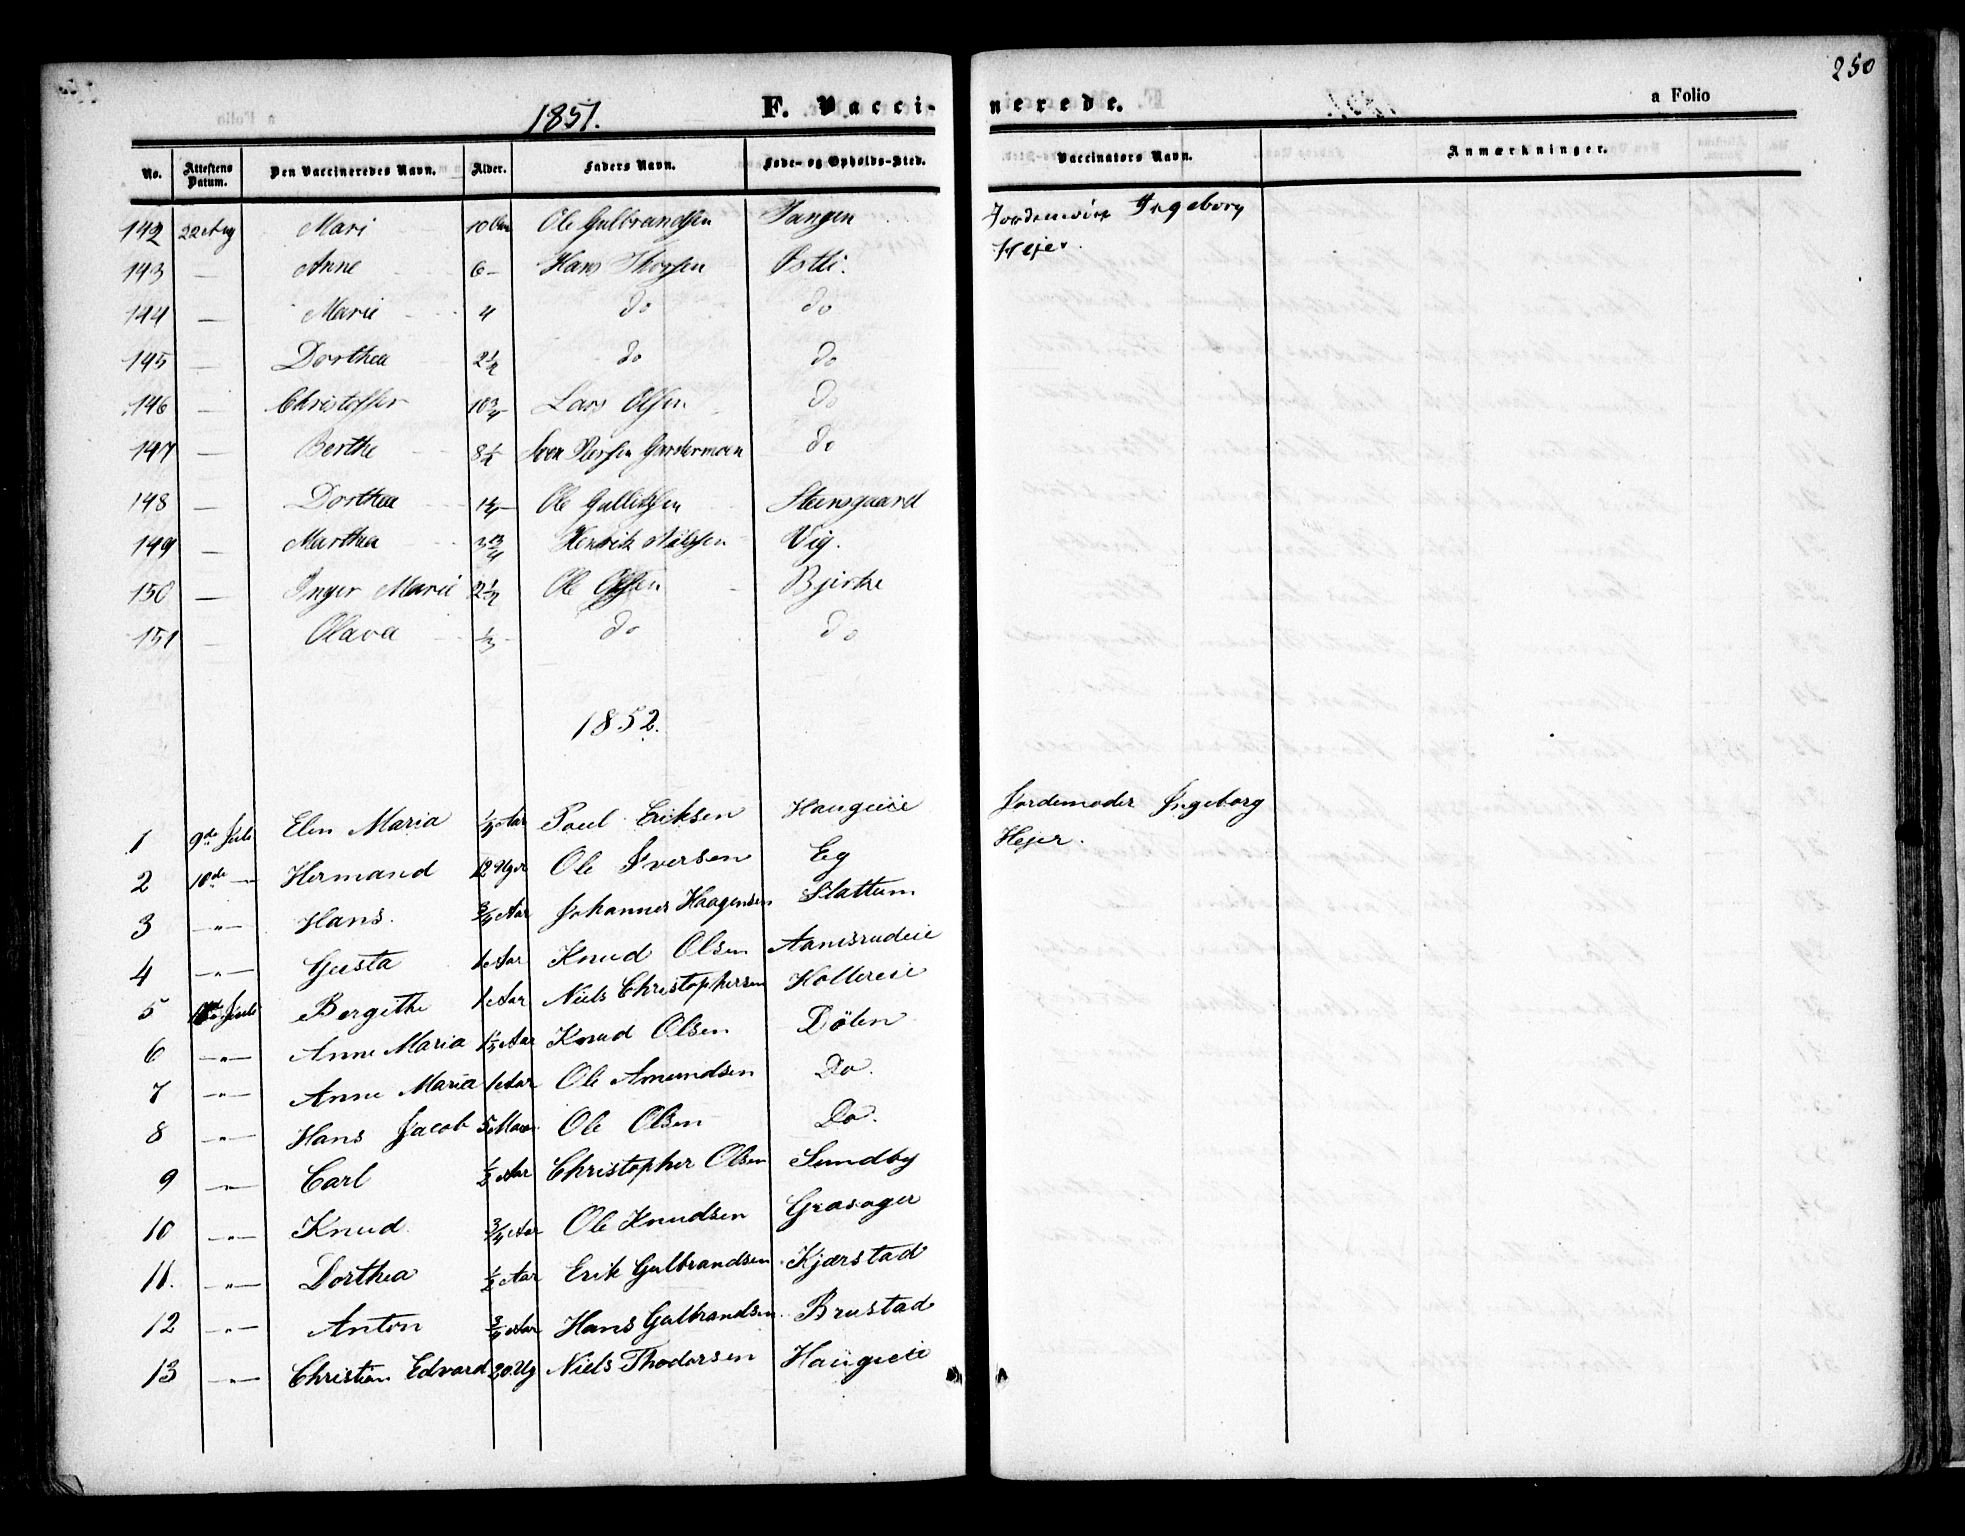 250
1851.
F. Vacci-
nerede.
a Folio
No. Attestens Datum. Den Vaccineredes Navn. Alder. Faders Navn. Føde- og Opholds-Sted. Vaccinators Navn. Anmærkninger.
142 22 Aug Mari 10 Ole Gulbrandsen Tangen Ingeborg
Hejer.
143 — Anne 6 — Hans Thorsen Østli.
144 — Marie 4 do do
145 — Dorthea 2½ do do
146 — Christoffer 10¾ Lars Olsen do
147 — Berthe 8¼ Persen Gardermoen do
148 — Dorthea Ole Steensgaard
149 — Marthea Henrik Nilssen Vig.
150 — Inger Marie 2½ Ole Olsen Bjerke
151 — Olava ⅓ do do
1852.
1 9de Juli Elen Maria Aar Poul Eriksen Haugeeie Jordemoder Ingeborg
Hejer.
2 10de — Hermand 12 Uger Ole Iversen Eg
3 —„— Hans. ¾ Aar Johannes Haagensen Slattum
4 —„— Gusta 1 Aar Knud Olsen
5 Juli Bergithe 1 Aar Niels Christophersen Hollereie
6 —„— Anne Maria 1½ Aar Knud Olsen Dølen
7 —„— Anne Maria 1 Aar Ole Amundsen Do.
8 —„— Hans Jacob 5 Ole Olsen Do.
9 —„— Carl ½ Aar Christopher Olsen Sundby
10 —„— Knud ¾ Aar Ole Knudsen Grasager
11. —„— Dorthea ½ Aar Erik Gulbrandsen Kjærstad
12 —„— Anton ¾ Aar Hans Gulbrandsen Brustad
13 —„— Christian Edvard 20 Ug Niels Thodorsen Haugeeie